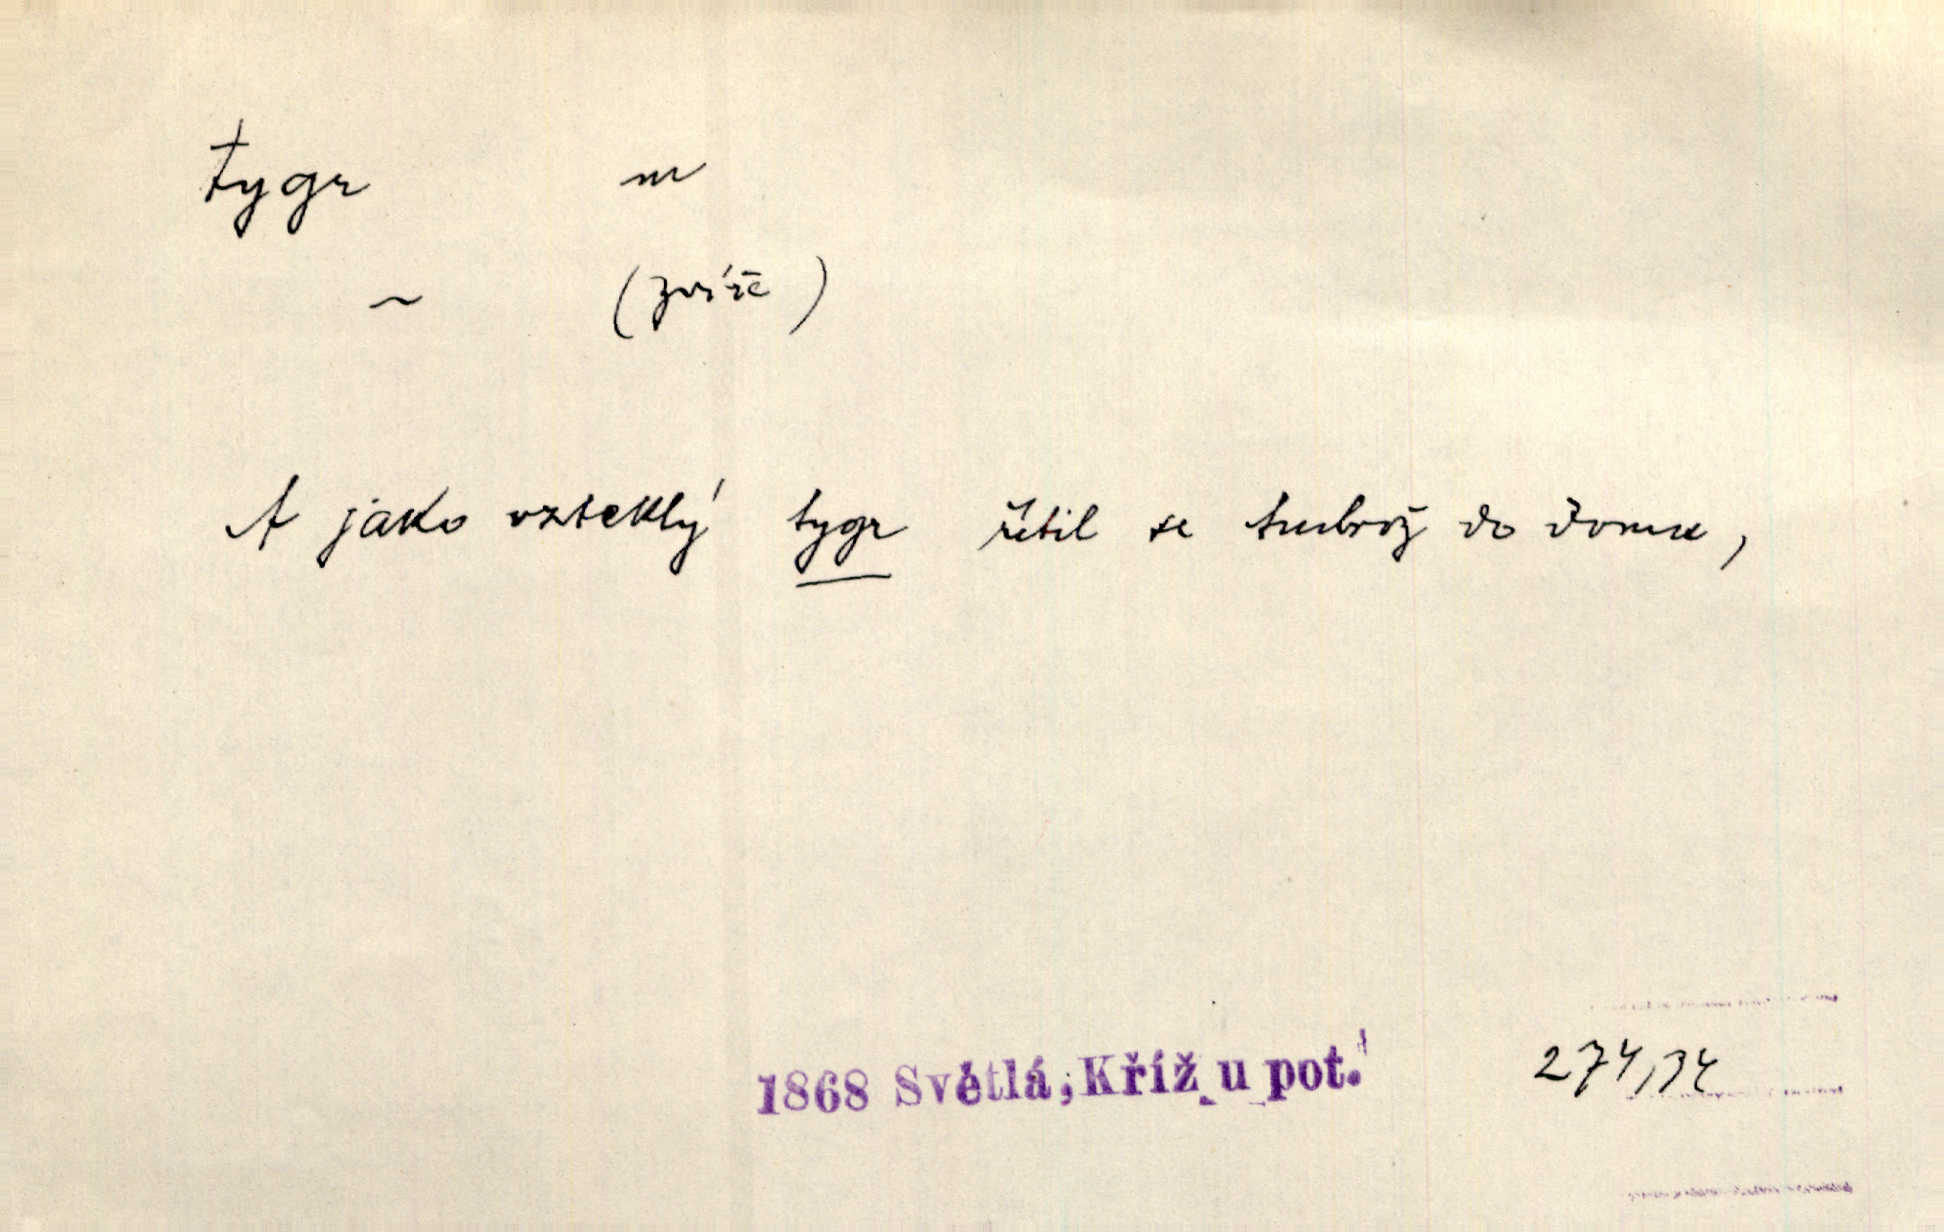 tygr m
~ (zvíře)
A jako vzteklý tygr řítil se Ambrož do domu,
1868 Světlá, Kříž u pot. 274,34